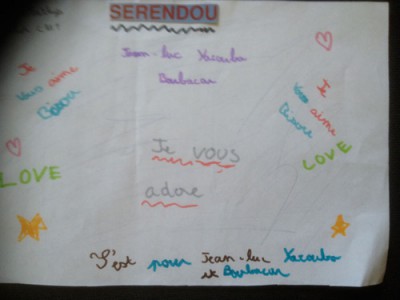 SERENDOU
Jean-luc Yacouba
Boubacar
Je
vous
aime
Bisous
Je
vous
aime
Bisous
Je vous
adore
LOVE
LOVE
C'est pour Jean-luc Yacouba
et Boubacar